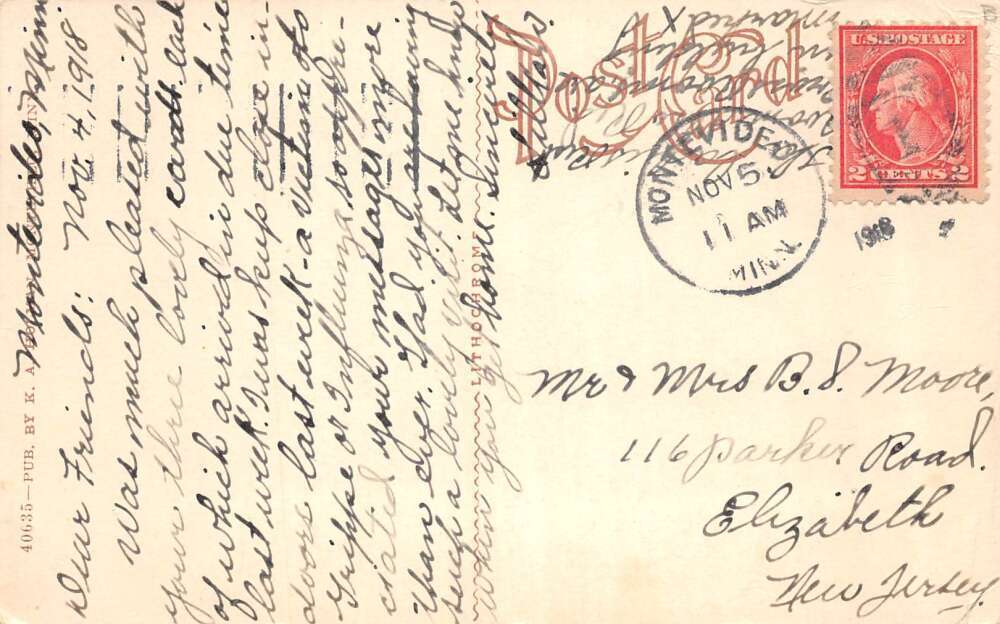 Montevideo, Minn.
Nov 4, 1918
Dear Friends:
Was much pleased with
your three lovely cards all
of which arrived in due time
last week. I was kept close in-
doors last week - a victim to
Grippe or Influenza, so appre-
ciated your messages more
than ever. Glad you are having
such a lovely visit. Let me know
when you get home. Sincerely
Lillian.
40635—PUB. BY K. A.
LITHOCHROME
Post Card
married X
in building
U.S. POSTAGE
2 CENTS 2
MONTEVIDEO
NOV 5
11 AM
MINN.
1918
Mr & Mrs B. S. Moore,
116 Parker Road.
Elizabeth
New Jersey.